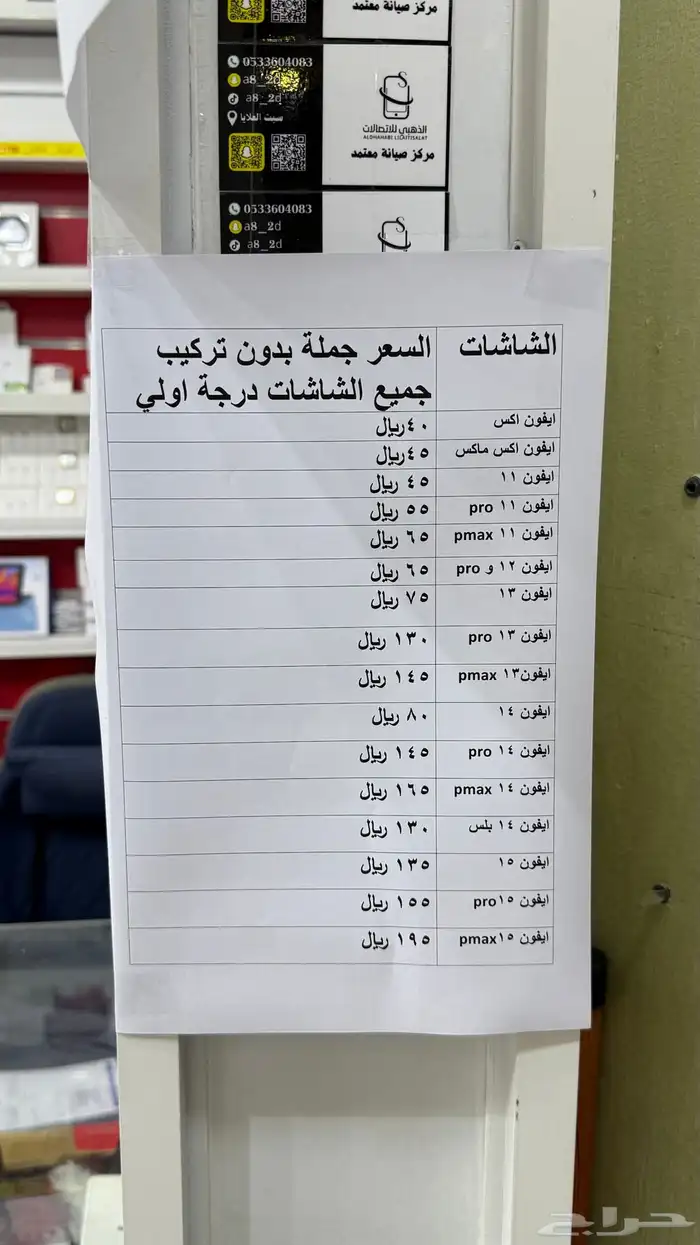 مركز صيانة معتمد
0533604083
a8_2d
a8_2d
سبت العلايا
الذهبي للاتصالات
ALDHAHABI LICHTTISALAT
مركز صيانة معتمد
0533604083
a8_2d
a8_2d
الشاشات السعر جملة بدون تركيب
جميع الشاشات درجة اولي
ايفون اكس ٤٠ريال
ايفون اكس ماكس ٤٥ريال
ايفون ١١ ٤٥ ريال
ايفون ١١ pro ٥٥ ريال
ايفون ١١ pmax ٦٥ ريال
ايفون ١٢ و pro ٦٥ ريال
ايفون ١٣ ٧٥ ريال
ايفون ١٣ pro ١٣٠ ريال
ايفون١٣ pmax ١٤٥ ريال
ايفون ١٤ ٨٠ ريال
ايفون ١٤ pro ١٤٥ ريال
ايفون ١٤ pmax ١٦٥ ريال
ايفون ١٤ بلس ١٣٠ ريال
ايفون ١٥ ١٣٥ ريال
ايفون ١٥pro ١٥٥ ريال
ايفون ١٥pmax ١٩٥ ريال
حراج